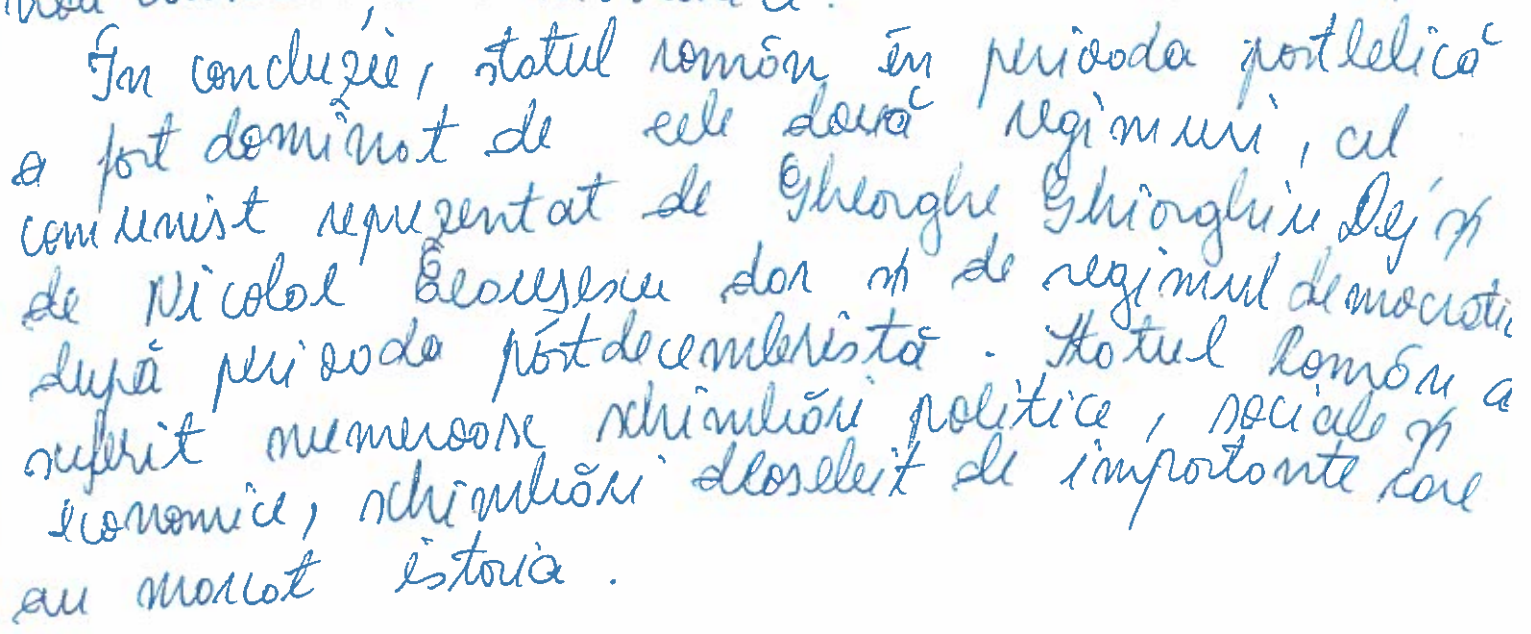 În concluzie, statul român în perioada postbelică
a fost dominat de cele două regimuri, cel
comunist reprezentat de Gheorghe Ghiorghiu Dej și
de Nicolae Ceaușescu dar și de regimul democratic
după perioada postdecembristă. Statul Român a
suferit numeroase schimbări politice, sociale și
economice, schimbări deosebit de importante care
au marcat istoria.